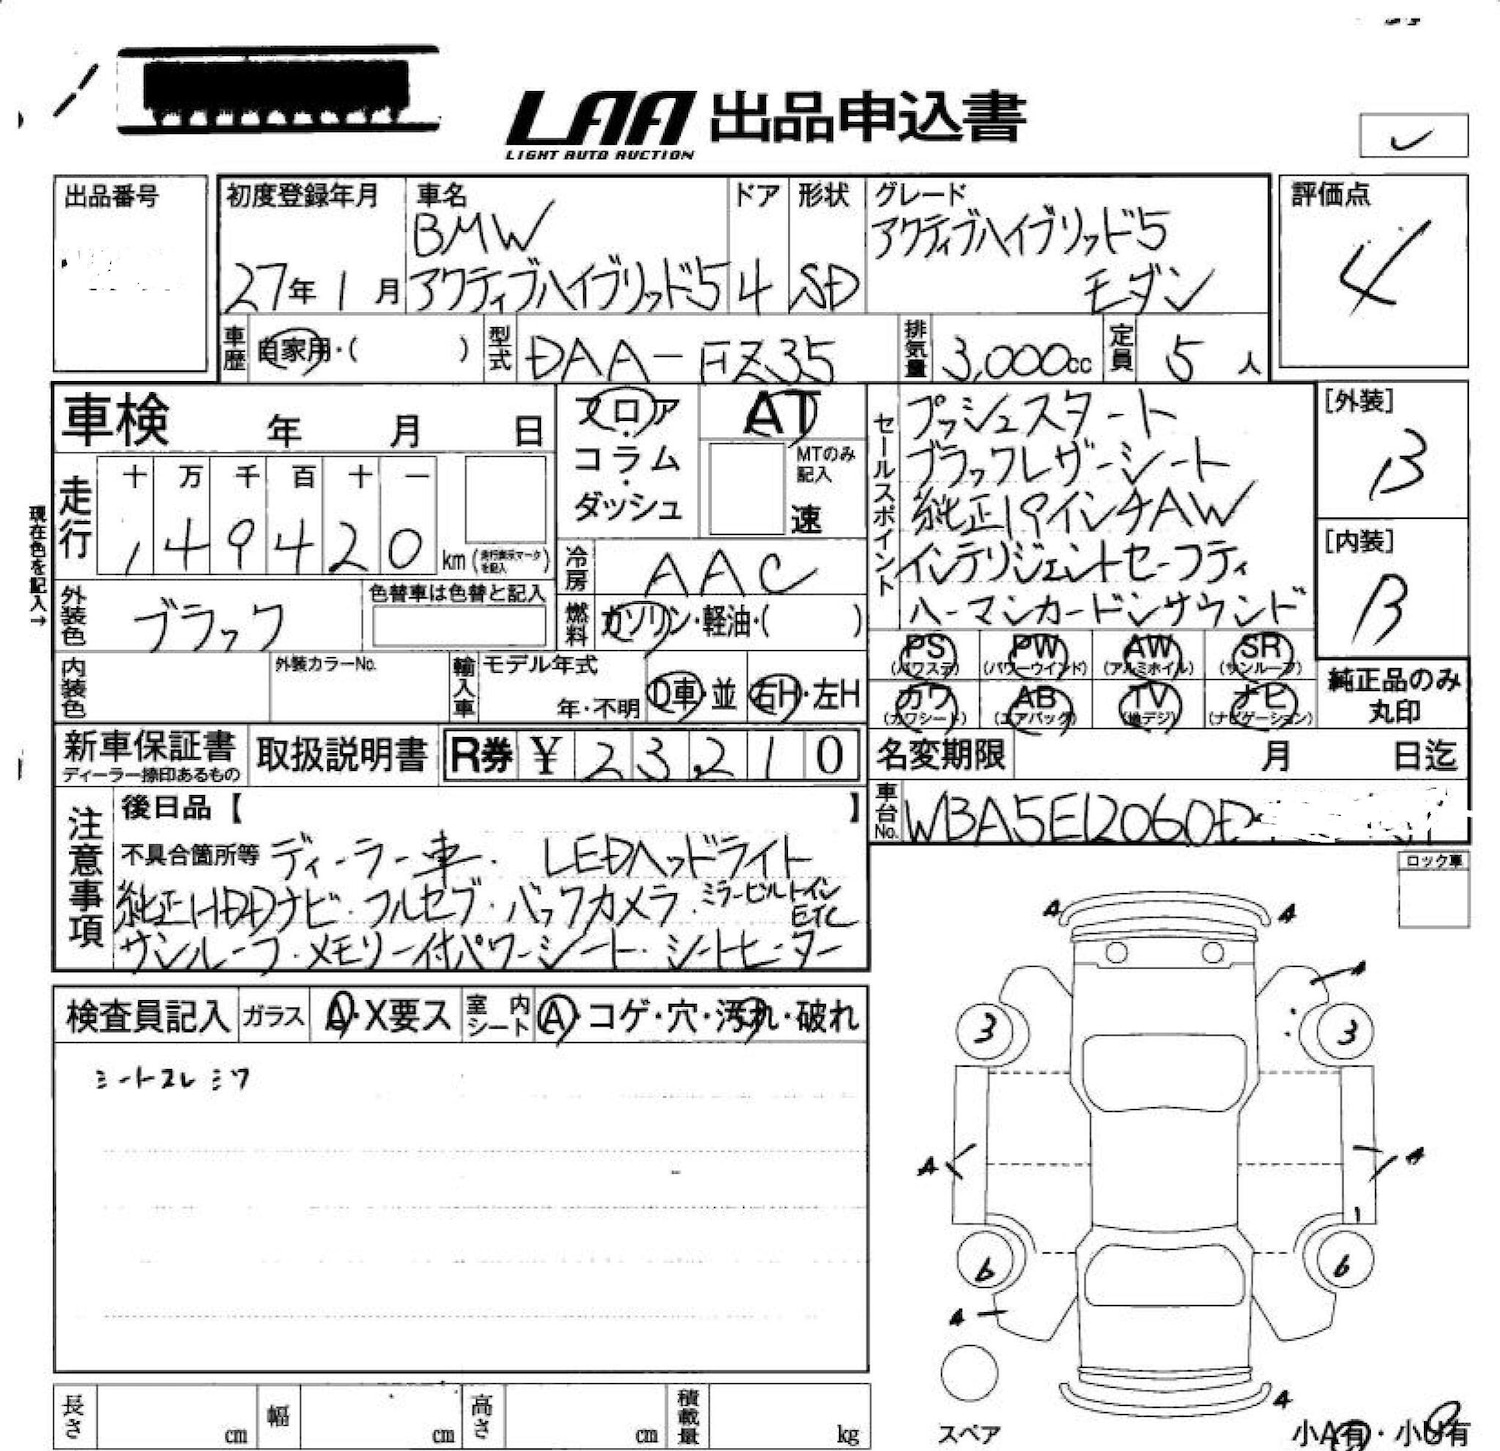 LAA 出品申込書
LIGHT AUTO AUCTION
出品番号
初度登録年月 27年1月
車名 BMW
アクティブハイブリッド5
ドア 4
形状 SD
グレード アクティブハイブリッド5
モダン
評価点 4
車歴 自家用・( )
型式 DAA-FZ35
排気量 3,000cc
定員 5人
車検 年 月 日
フロア
コラム
ダッシュ
AT
MTのみ
記入
速
セールスポイント
プッシュスタート
ブラックレザーシート
純正19インチAW
インテリジェントセーフティ
ハーマンカードンサウンド
[外装]
B
[内装]
B
走行
十 万 千 百 十 一
, 4 9 4 2 0 km (走行表示マークを記入)
現在色を記入→
冷房 AAC
外装色 ブラック
色替車は色替と記入
燃料 ガソリン・軽油・( )
PS (パワステ)
PW (パワーウインド)
AW (アルミホイル)
SR (サンルーフ)
カワ (カワシート)
AB (エアバッグ)
TV (地デジ)
ナビ (ナビゲーション)
純正品のみ
丸印
内装色
外装カラーNo.
輸入車
モデル年式
年・不明
D車・並
右H・左H
新車保証書
ディーラー捺印あるもの
取扱説明書
R券 ¥ 23,210
名変期限 月 日迄
注意事項
後日品【 】
車台No. WBA5E12060D
不具合箇所等 ディーラー車. LEDヘッドライト
純正HDDナビ・フルセグ・バックカメラ・ミラービルトイン
ETC
サンルーフ・メモリー付パワーシート・シートヒーター
ロック車
検査員記入 ガラス A・X要ス 室内シート A・コゲ・穴・汚れ・破れ
シートスレシワ
A A
A
3 3
A A
6 6
A
A
スペア
小A有・小U有
長さ cm 幅 cm 高さ cm 積載量 kg